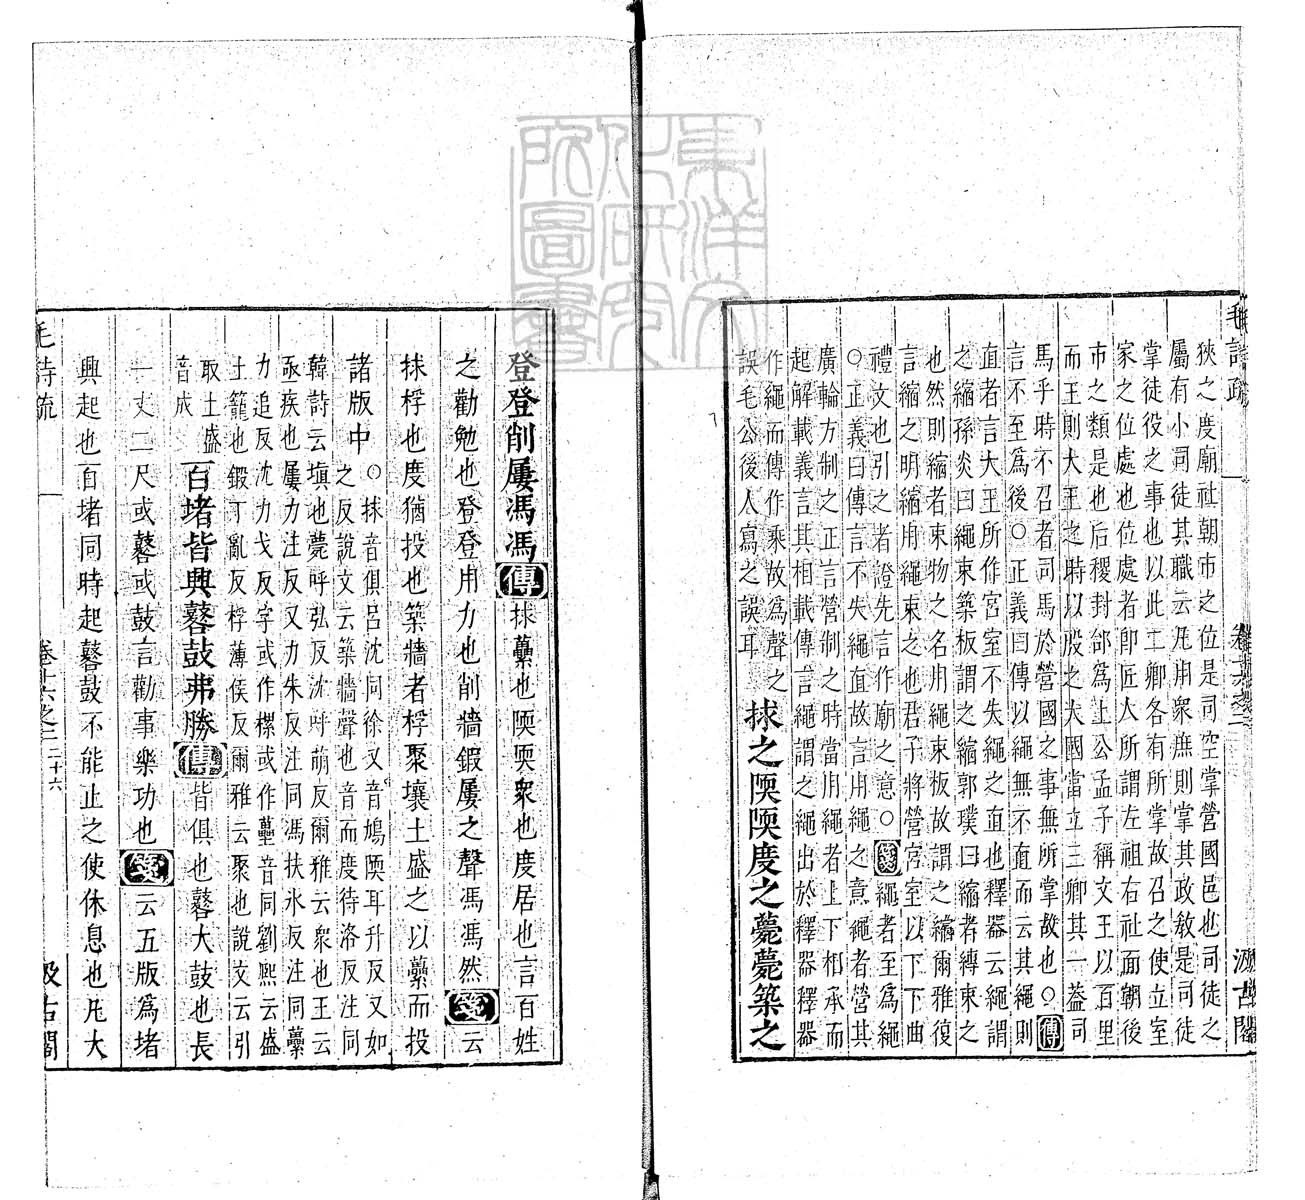 毛詩疏
卷十六之二
汲古閣
狹之度廟社朝市之位是司空掌營國邑也司徒之
屬有小司徒其職云凡用衆庶則掌其政敎是司徒
掌徒役之事也以此二卿各有所掌故召之使立室
家之位處也位處者卽匠人所謂左祖右社面朝後
市之類是也后稷封邰爲上公孟子稱文王以百里
而王則大王之時以殷之大國當立三卿其一蓋司
馬乎時不召者司馬於營國之事無所掌故也○傳
言不至爲後○正義曰傳以繩無不直而云其繩則
直者言大王所作宮室不失繩之直也釋器云繩謂
之縮孫炎曰繩束築板謂之縮郭璞曰縮者縛束之
也然則縮者束物之名用繩束板故謂之縮爾雅復
言縮之明縮用繩束之也君子將營宮室以下下曲
禮文也引之者證先言作廟之意○箋繩者至爲繩
○正義曰傳言不失繩直故言用繩之意繩者營其
廣輪方制之正言營制之時當用繩者上下相承而
起解載義言其相載傳言繩謂之繩出於釋器釋器
作繩而傳作乘故爲聲之
誤毛公後人寫之誤耳
捄之陾陾度之薨薨築之
登登削屢馮馮傳捄虆也陾陾衆也度居也言百姓
之勸勉也登登用力也削牆鍛屢之聲馮馮然箋云
捄桴也度猶投也築牆者桴聚壤土盛之以虆而投
諸版中
○捄音俱呂沈同徐又音鳩陾耳升反又如
之反說文云築牆聲也音而度待洛反注同
韓詩云塡也薨呼弘反沈呼萌反爾雅云衆也王云
亟疾也屢力注反又力朱反注同馮扶氷反注同虆
力追反沈力戈反字或作樏或作蘽音同劉熙云盛
土籠也鍛丁亂反桴薄侯反爾雅云聚也說文云引
取土盛
音成
百堵皆興鼛鼓弗勝傳皆俱也鼛大鼓也長
一丈二尺或鼛或鼓言勸事樂功也箋云五版爲堵
興起也百堵同時起鼛鼓不能止之使休息也凡大
毛詩疏
卷十六之二
二十六
汲古閣